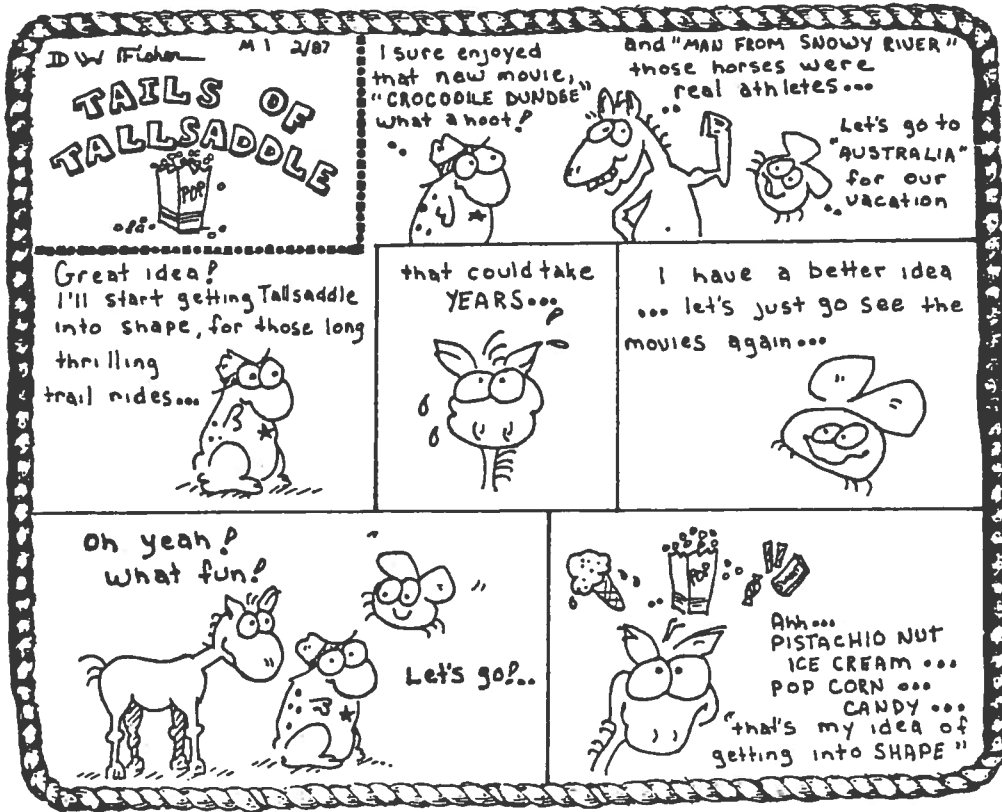 DW Fisher
M1 2/87
TAILS OF
TALLSADDLE
POP
I sure enjoyed
that new movie,
"CROCODILE DUNDEE"
what a hoot!
and "MAN FROM SNOWY RIVER"
those horses were
real athletes...
Let's go to
"AUSTRALIA"
for our
vacation
Great idea!
I'll start getting Tallsaddle
into shape, for those long
thrilling
trail rides...
that could take
YEARS...
I have a better idea
... let's just go see the
movies again...
Oh yeah!
What fun!
Let's go!..
POP
Ahh...
PISTACHIO NUT
ICE CREAM ...
POP CORN ...
CANDY ...
"that's my idea of
getting into SHAPE"